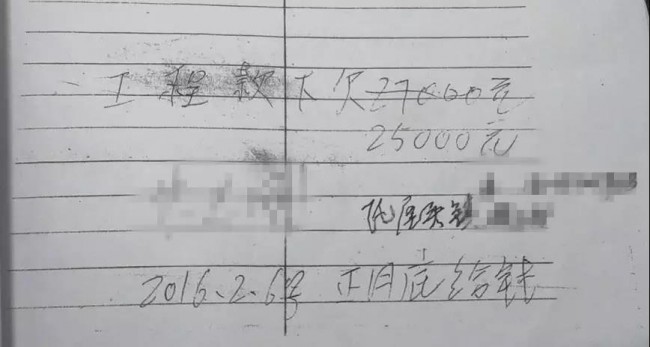 工程款下欠27000元
25000元
2016.2.6号 正月底给钱